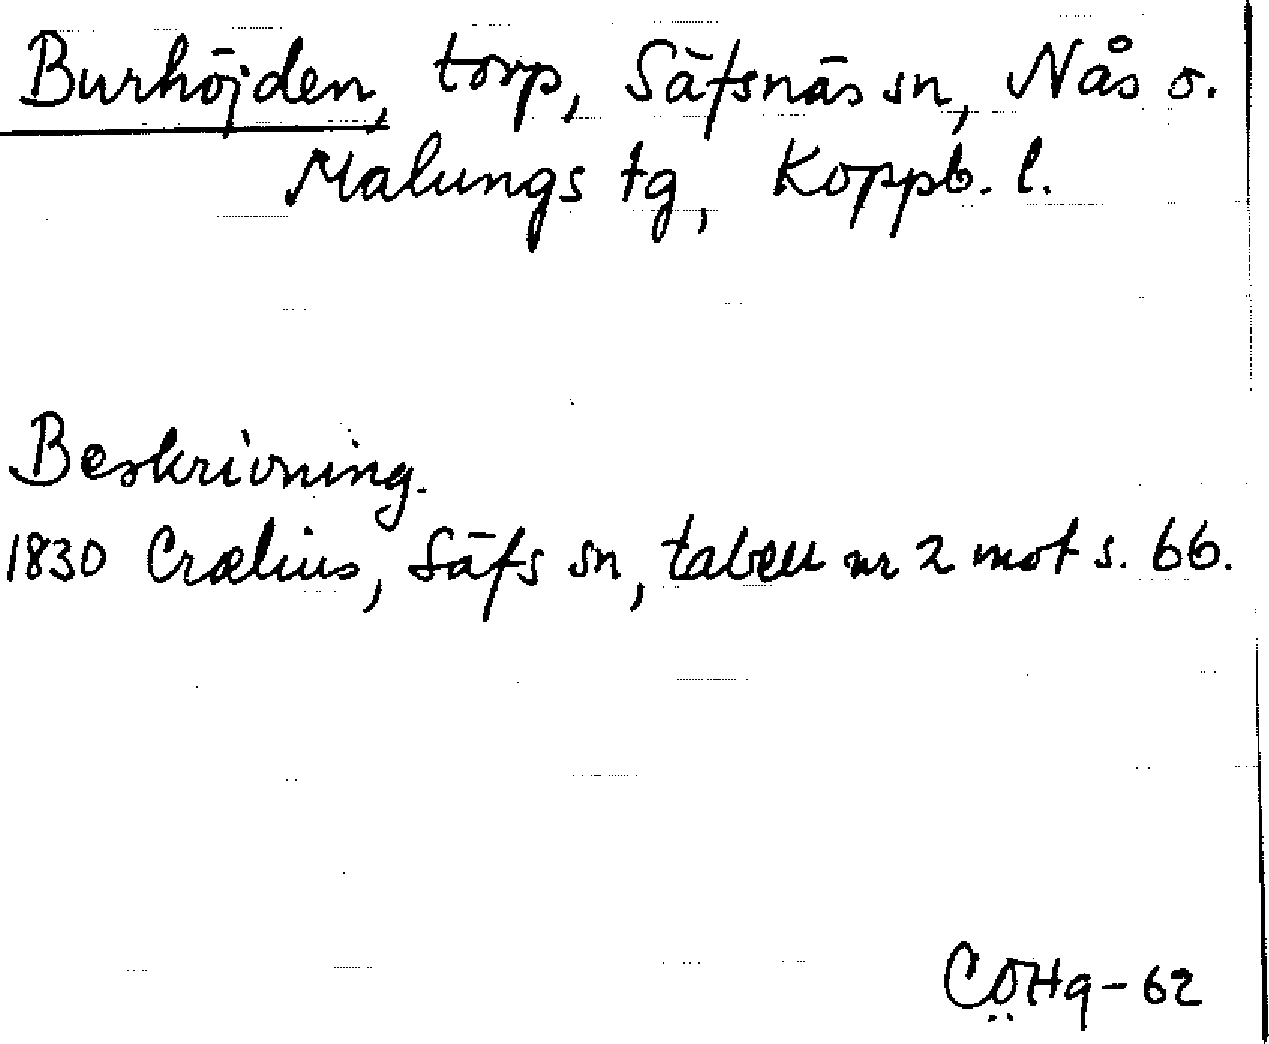 Burhöjden, torp, Säfsnäs sn, Nås o.
Malungs tg, Koppb. l.
Beskrivning.
1830 Crælius, Säfs sn, tabell nr 2 mot s. 66.
CÖHg-62